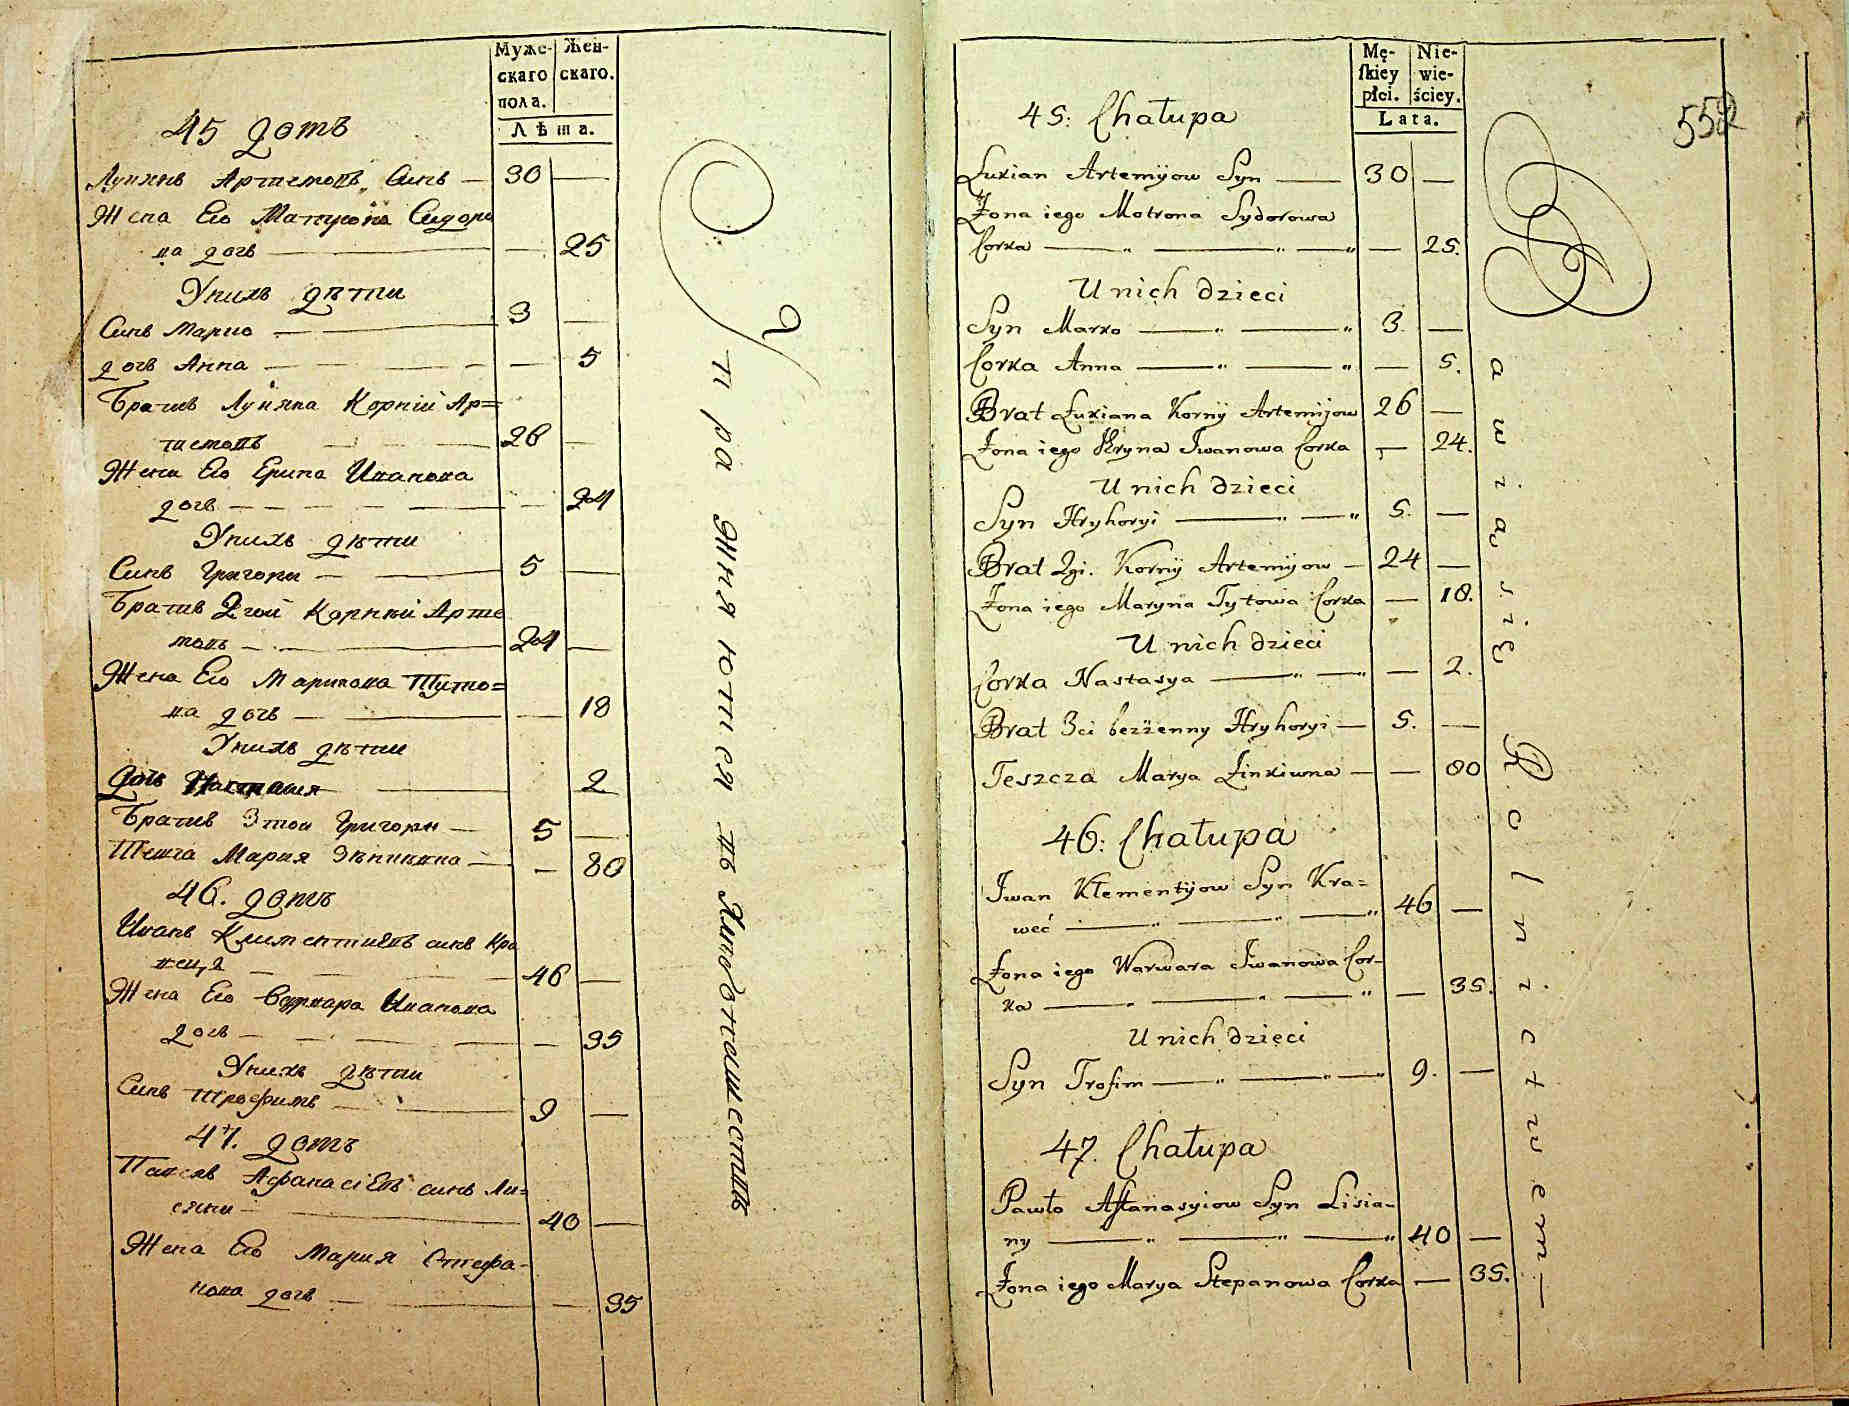 Муже-
скаго
пола.
Жен-
скаго.
Лѣта.
45 домъ
Лукянъ Артемовъ Синъ — 30 —
Жена Его Матрона Сидоро
ва дочь — — 25
Унихъ дѣти
Синъ Марко — 3 —
дочь Анна — — 5
Братъ Лукяна Корній Ар=
темовъ — 26 —
Жена Его Ерина Иванова
дочь — — 24
Унихъ дѣти
Синъ Григори — 5 —
Братъ 2гой Корній Арте
мовъ — 24 —
Жена Его Маринова Титто=
ва дочь — — 18
Унихъ дѣти
дочь Настасия — 2
Братъ 3той Григори — 5 —
Теща Мария Зѣнкивна — — 80
46. домъ
Иванъ Климентиевъ синъ Кра
вецъ — 46 —
Жена Его Варвара Иванова
дочь — — 35
Унихъ дѣти
Синъ Трофимъ — 9 —
47. домъ
Павелъ Афанасіевъ синъ Ли=
сяни — 40 —
Жена Его Мария Стефа-
нова дочь — — 35
Упражняются въ Хлѣбопашествѣ
Mę-
ſkiey
płci.
Nie-
wie-
ściey.
Lata.
552
45: Chałupa
Łukian Artemijow Syn — 30 —
Żona iego Motrona Sydorowa
Corka — " — " — " — 25.
U nich dzieci
Syn Marko — " — " 3. —
Corka Anna — " — " — 5.
Brat Łukiana Korny Artemijow 26 —
Żona iego Hryna Iwanowa Corka — 24.
U nich dzieci
Syn Hryhoryi — " — " 5. —
Brat 2gi. Korny Artemijow — 24 —
Żona iego Maryna Tytowa Corka — 18.
U nich dzieci
Corka Nastasya — " — " — 2.
Brat 3ci bezżenny Hryhoryi — 5. —
Teszcza Marya Zinkiwna — — 80
46: Chałupa
Iwan Klementijow Syn Kra=
weć — " — " — " 46 —
Żona iego Warwara Iwanowa Cor-
ka — " — " — " — 35.
U nich dzieci
Syn Trofim — " — " — " 9. —
47. Chałupa
Pawło Aftanasyiow Syn Lisia-
ny — " — " — " 40 —
Żona iego Marya Stepanowa Corka — 35.
Bawią się Rolnictwem —